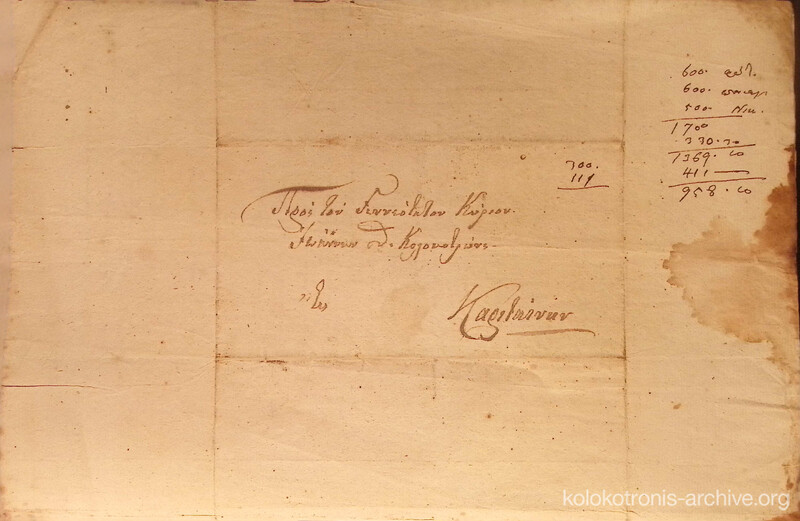 600. 
600. 
500. Νικ.
1700
330.20
1369.20
411
958.20
300.
111
Πρὸς τὸν Γενναιότατον Κύριον.
Ἰωάννην Θ. Κολοκοτρώνη.
Καρίταιναν
kolokotronis-archive.org